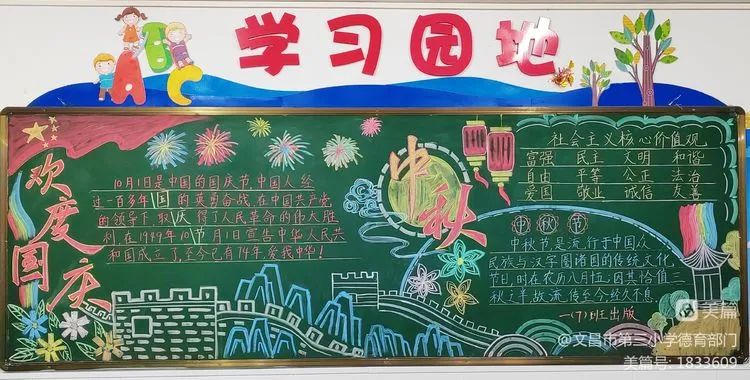 学习园地
ABC
欢度国庆
10月1日是中国的国庆节,中国人经
过一百多年的英勇奋战,在中国共产党
的领导下取得了人民革命的伟大胜
利,在1949年10月1日宣告中华人民共
和国成立了,至今已有74年,爱我中华!
国庆节
中秋
社会主义核心价值观
富强 民主 文明 和谐
自由 平等 公正 法治
爱国 敬业 诚信 友善
中秋节
中秋节是流行于中国众
民族与汉字圈诸国的传统文化
节日,时在农历八月十五;因其恰值三
秋之半,故 流传至今经久不息
一(7)班出版
美篇
@文昌市第三小学德育部门
美篇号: 1833609